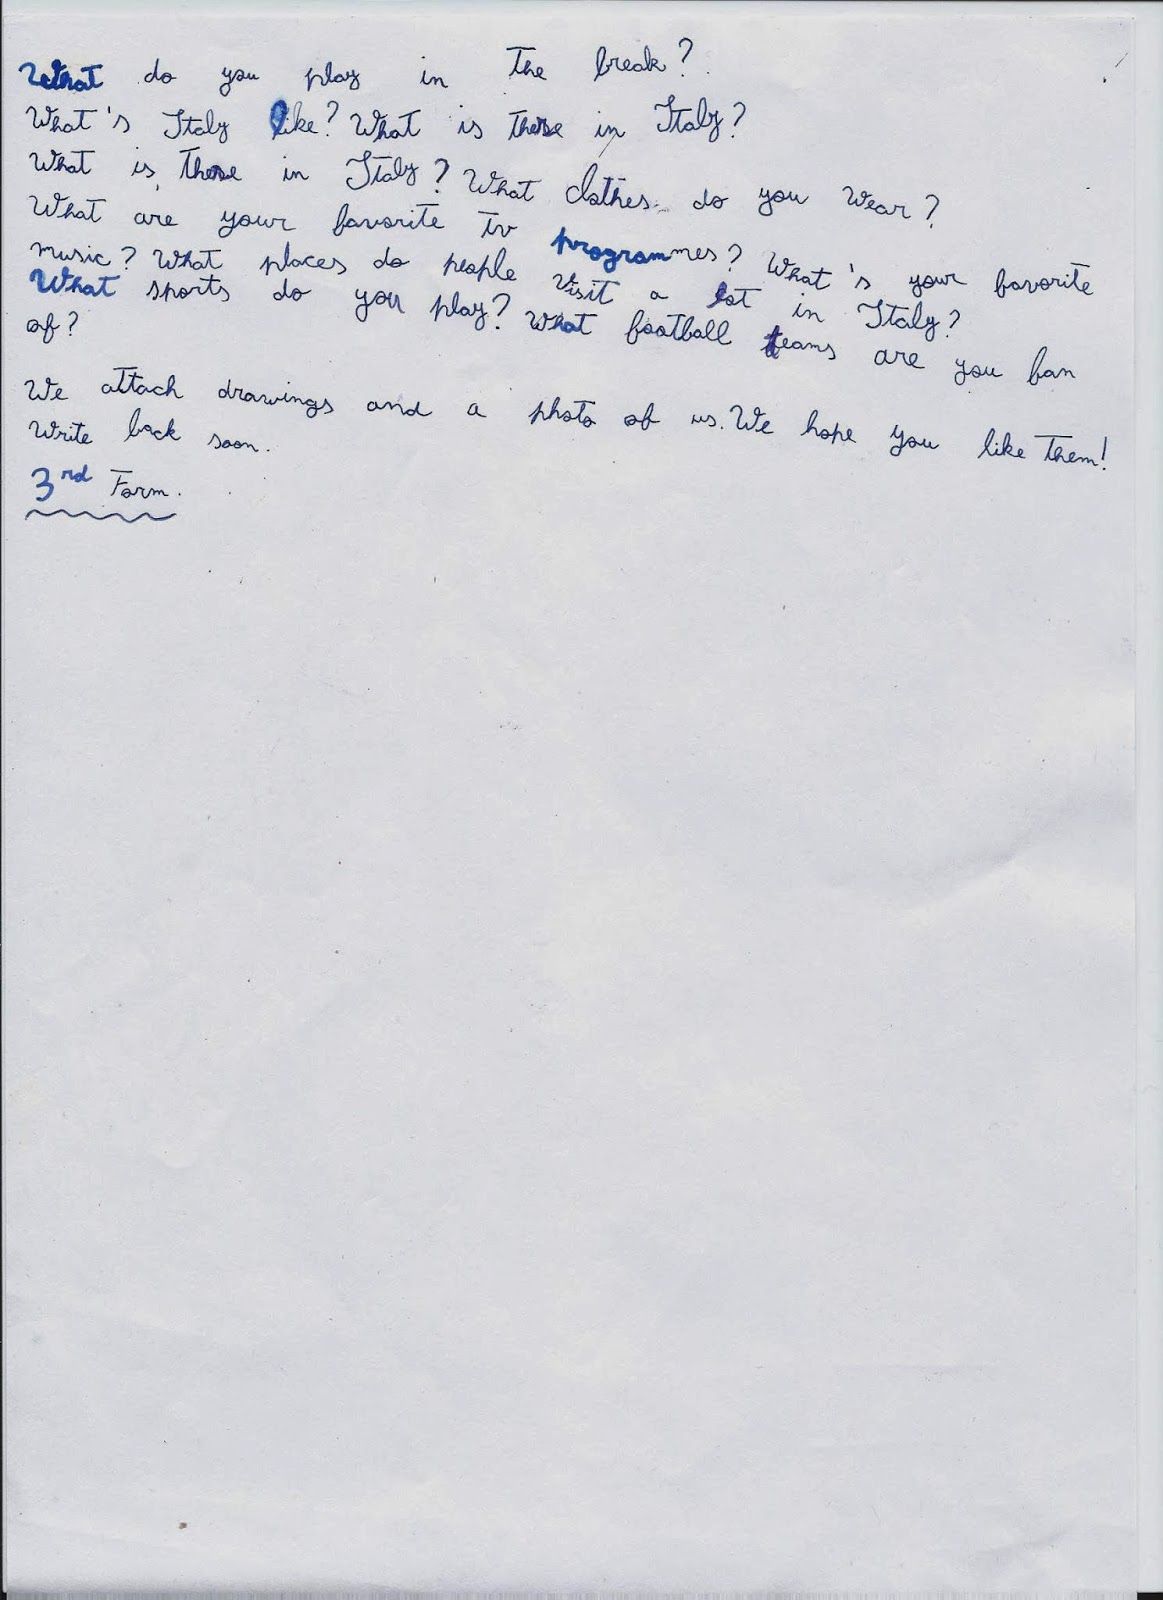 What do you play in the break?
What's Italy like? What is there in Italy?
What is there in Italy? What clothes do you wear?
What are your favorite tv programmes? What's your favorite
music? What places do people visit a lot in Italy?
What sports do you play? What football teams are you fan
of?
We attach drawings and a photo of us. We hope you like them!
Write back soon.
3rd Form.